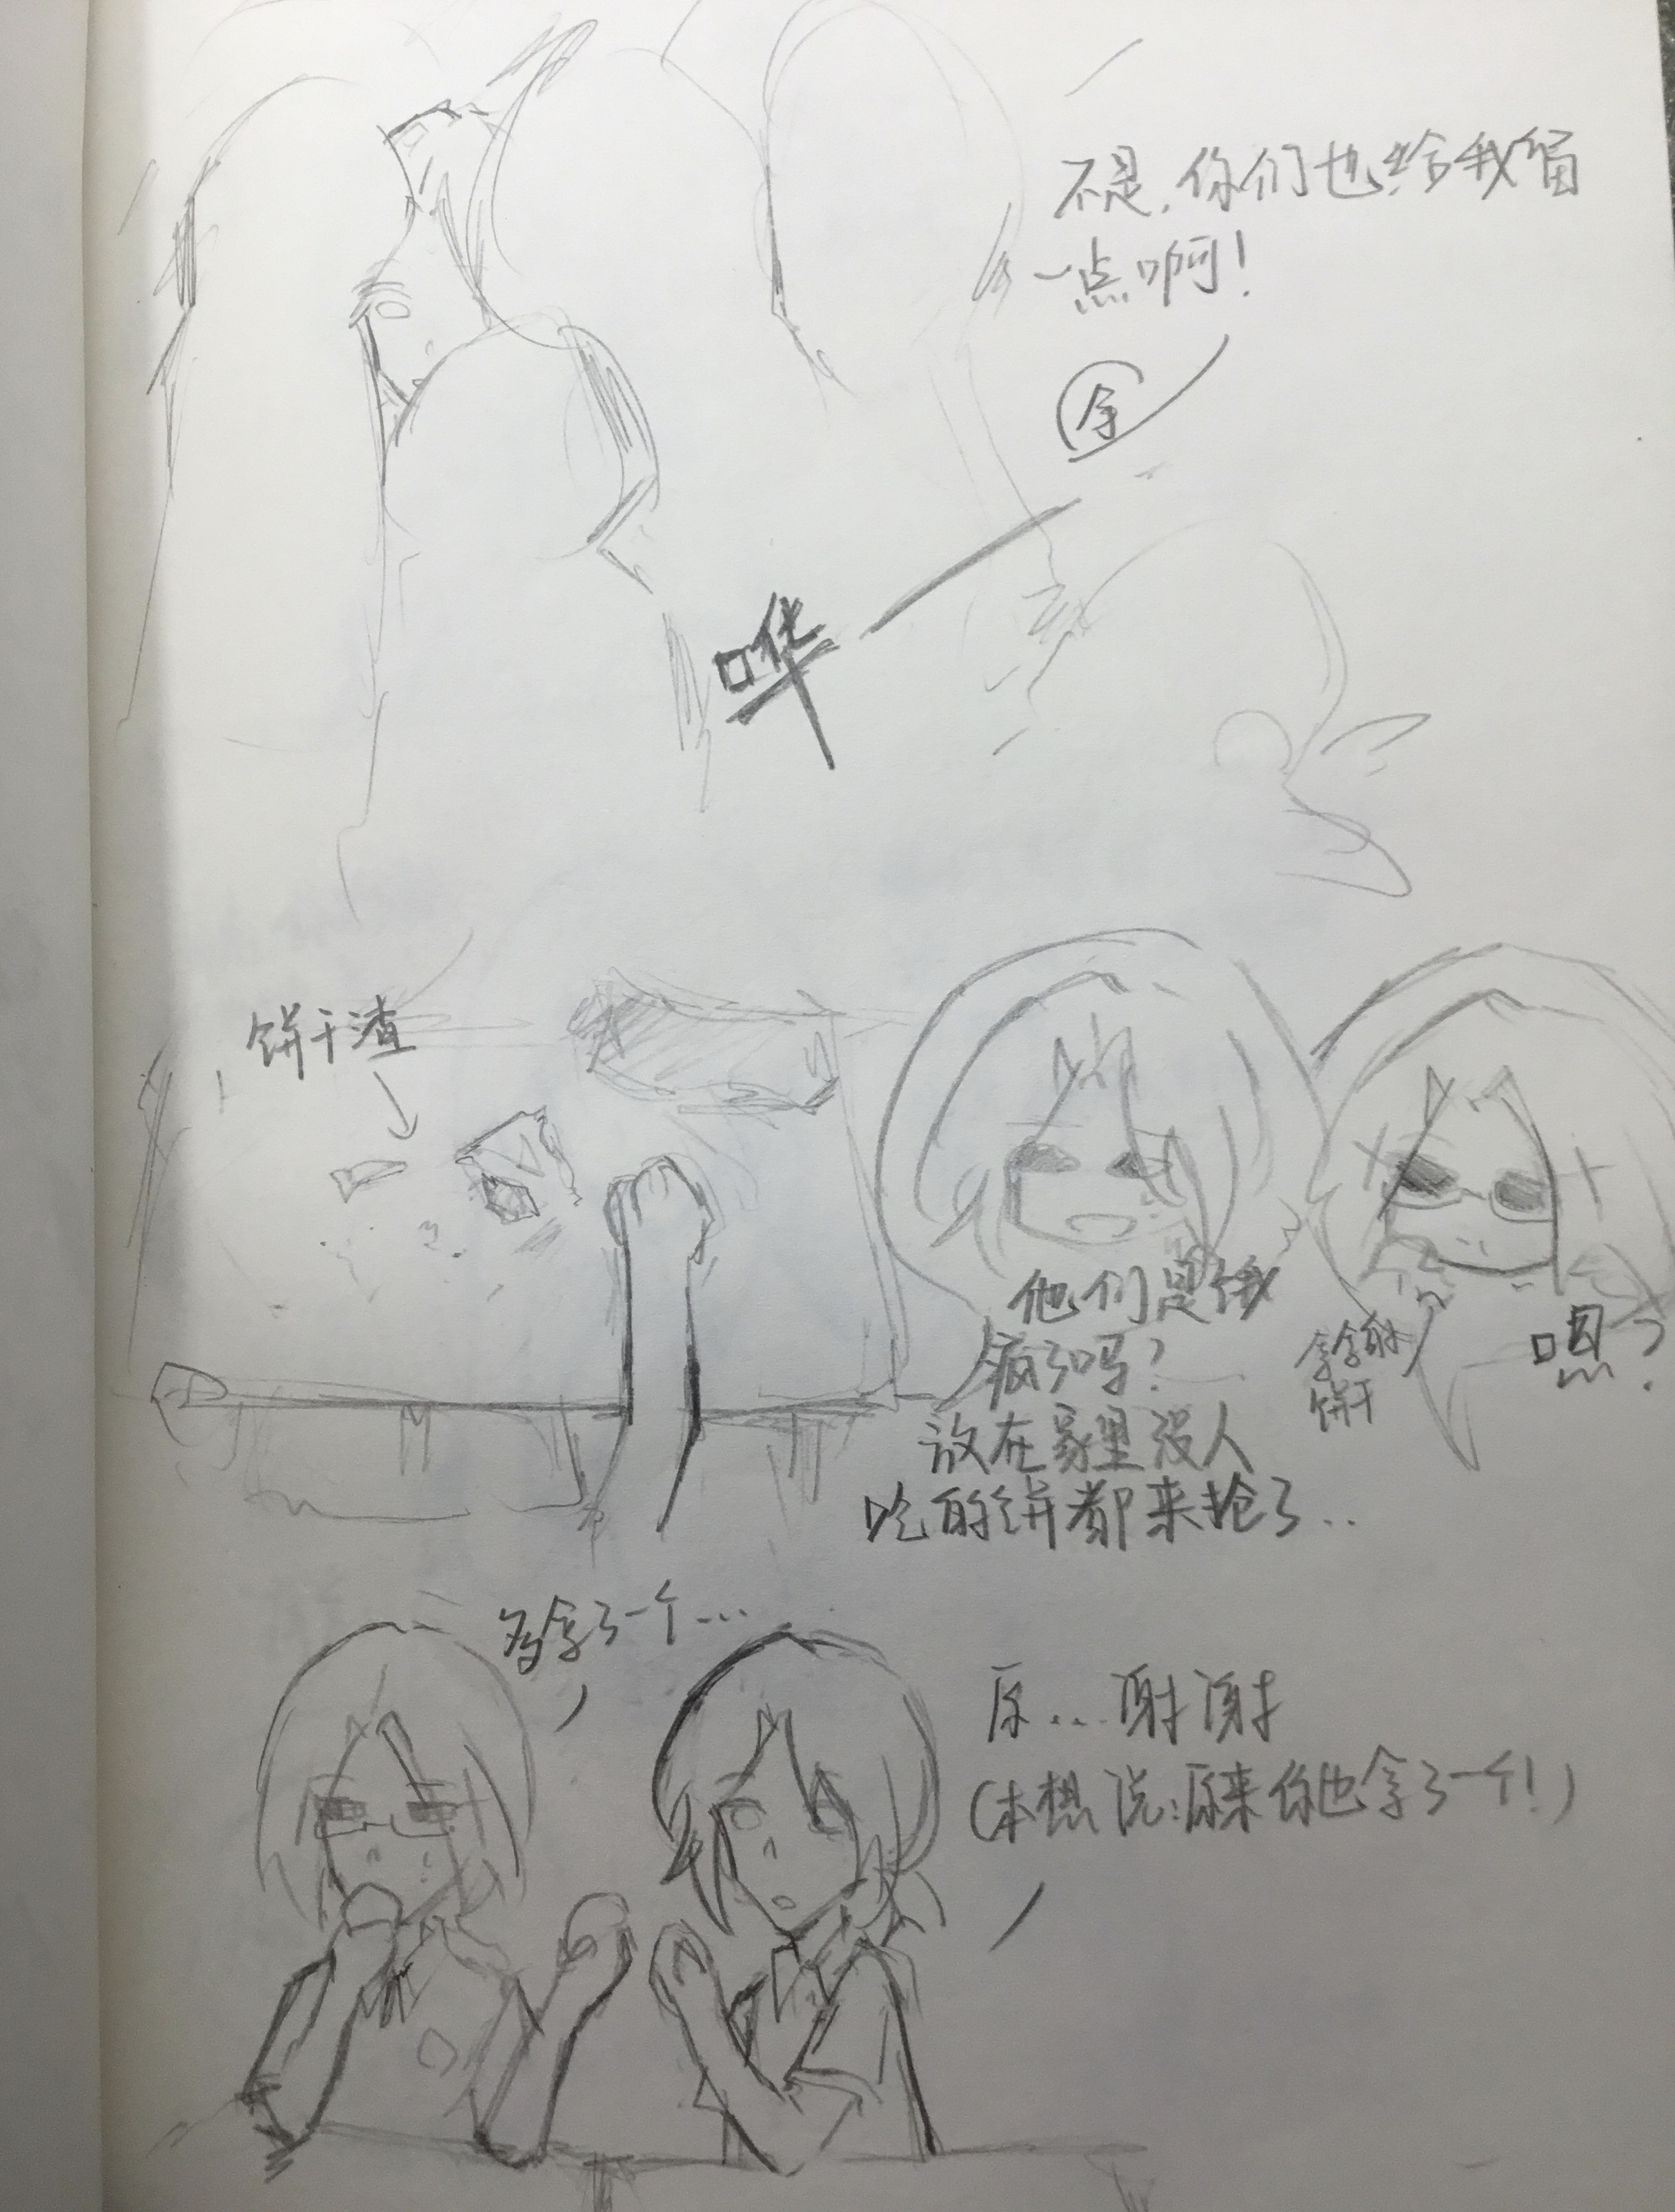 不是，你们也给我留
一点啊！
余
哗
饼干渣
他们是饿
疯了吗？
放在家里没人
吃的饼都来抢了..
拿余的
饼干
嗯？
多拿了一个…
原…谢谢
（本想说：原来你也拿了一个！）